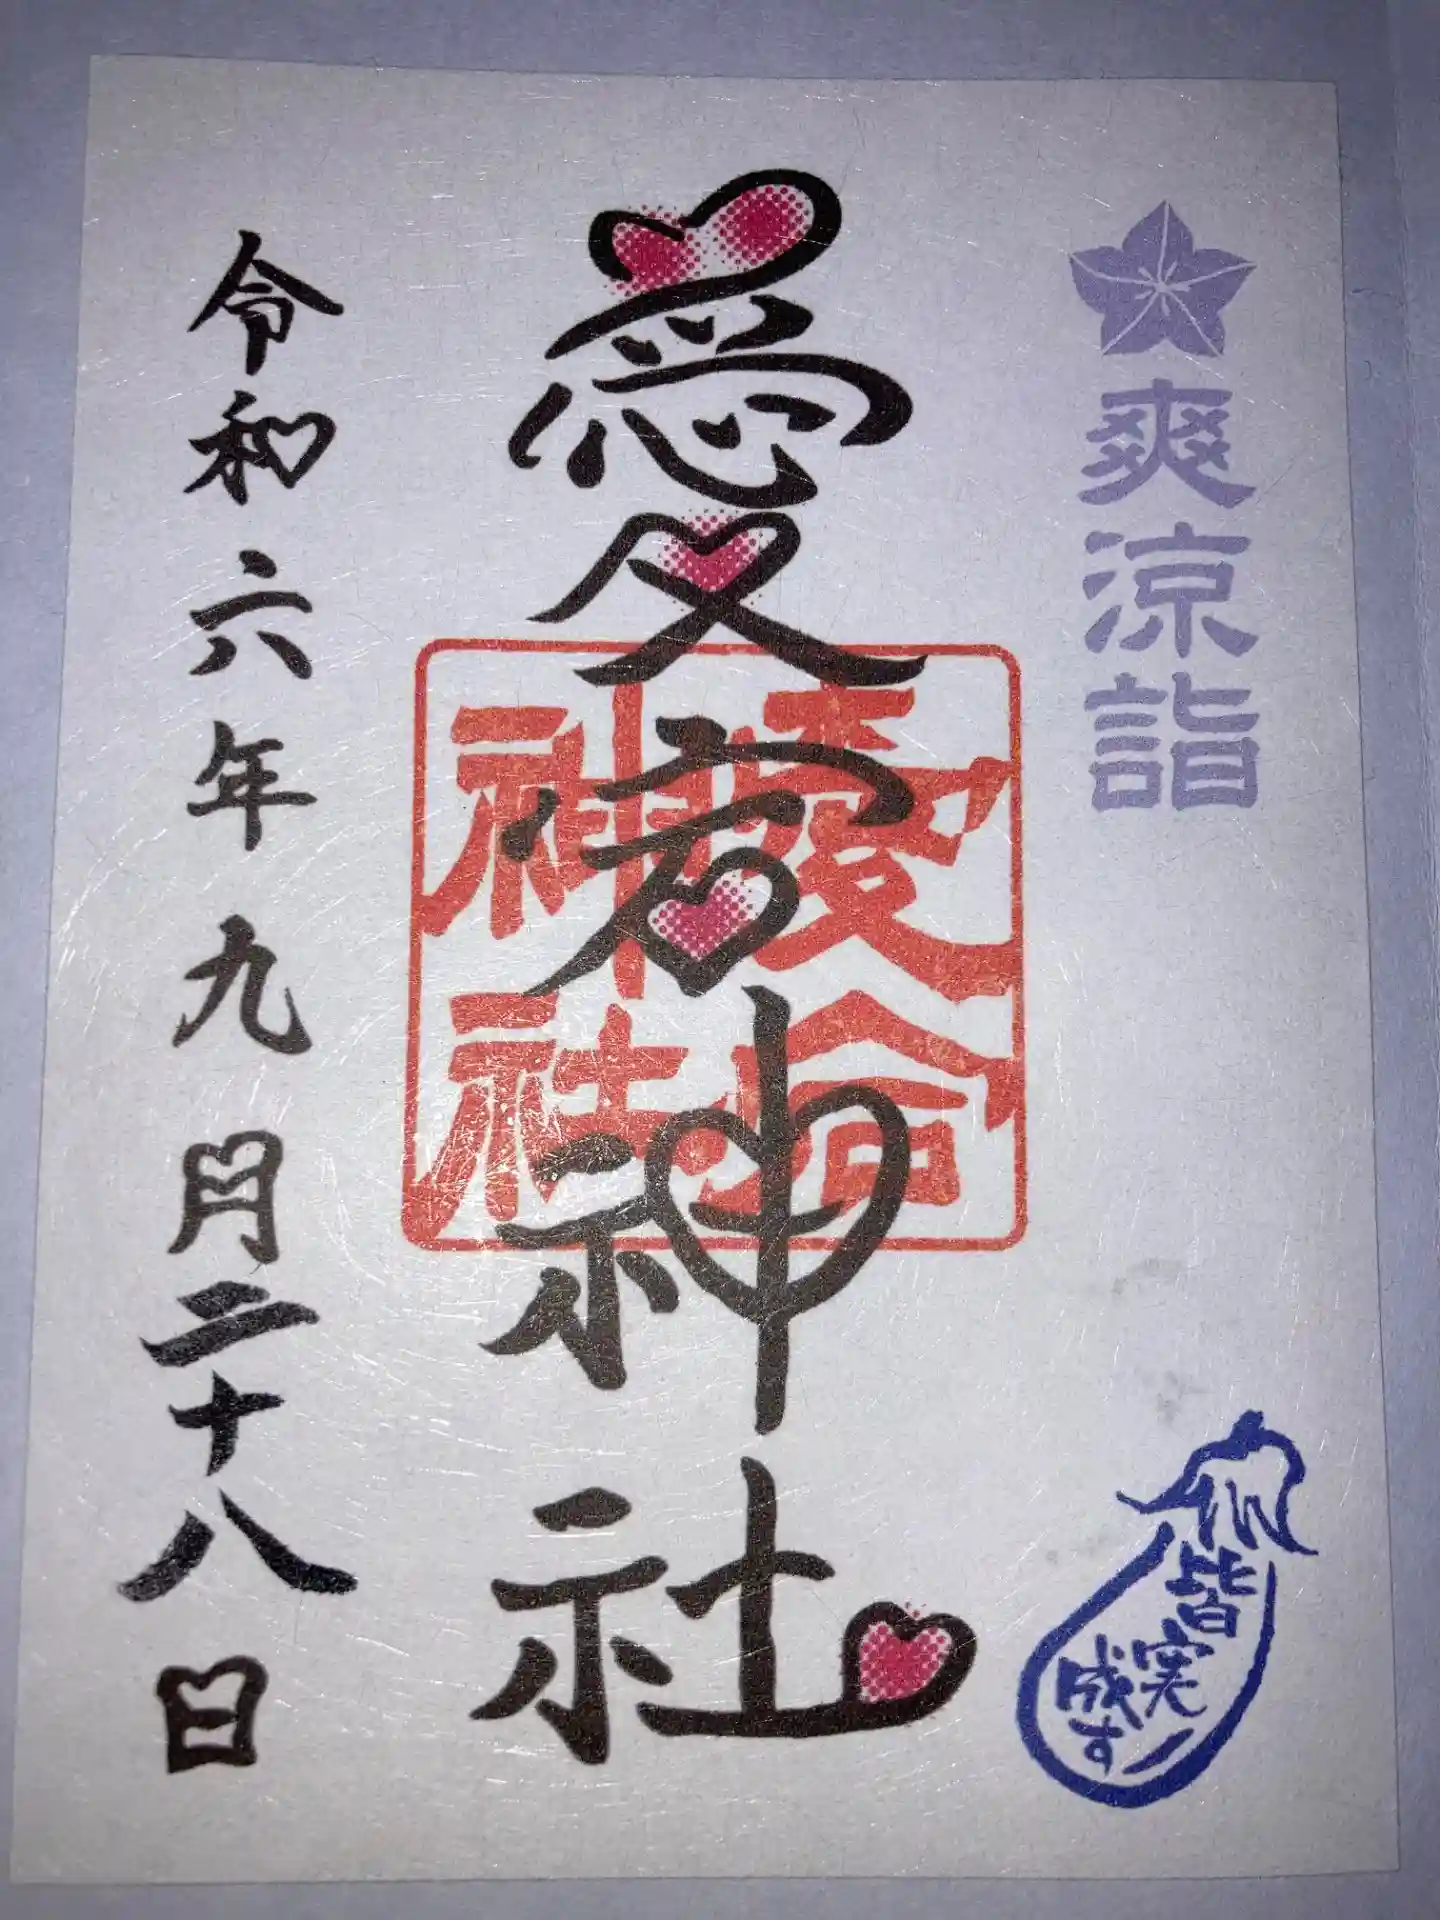 爽涼詣
皆実
成す
愛宕神社
愛宕
神社
令和六年九月二十八日